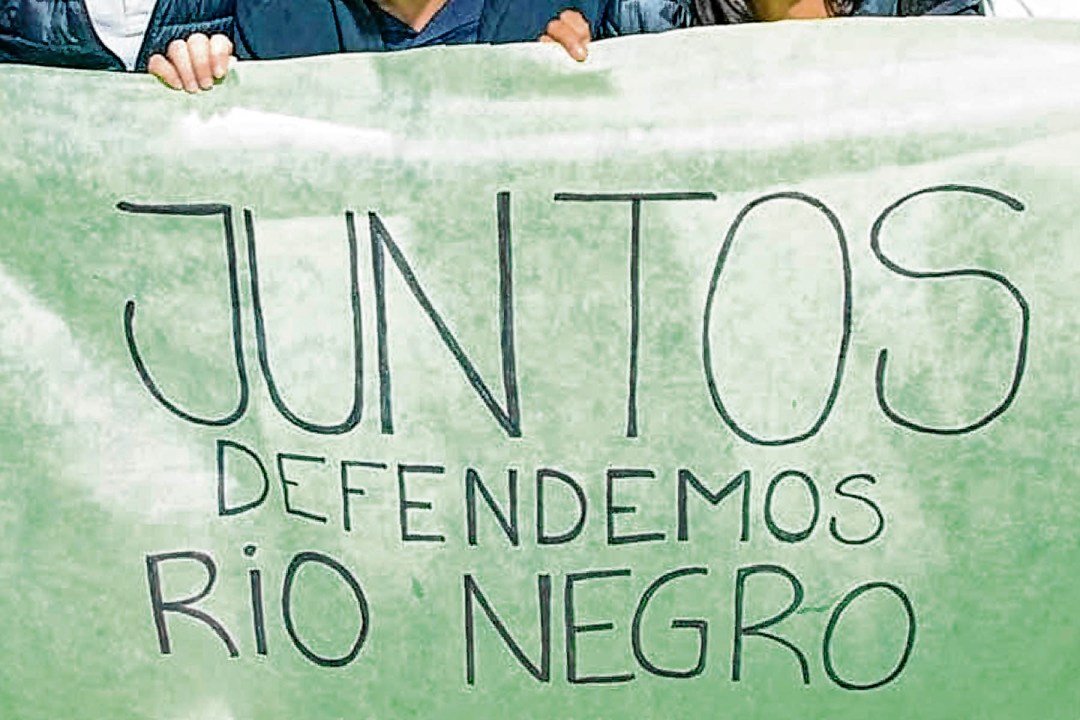 JUNTOS
DEFENDEMOS
RiO NEGRO